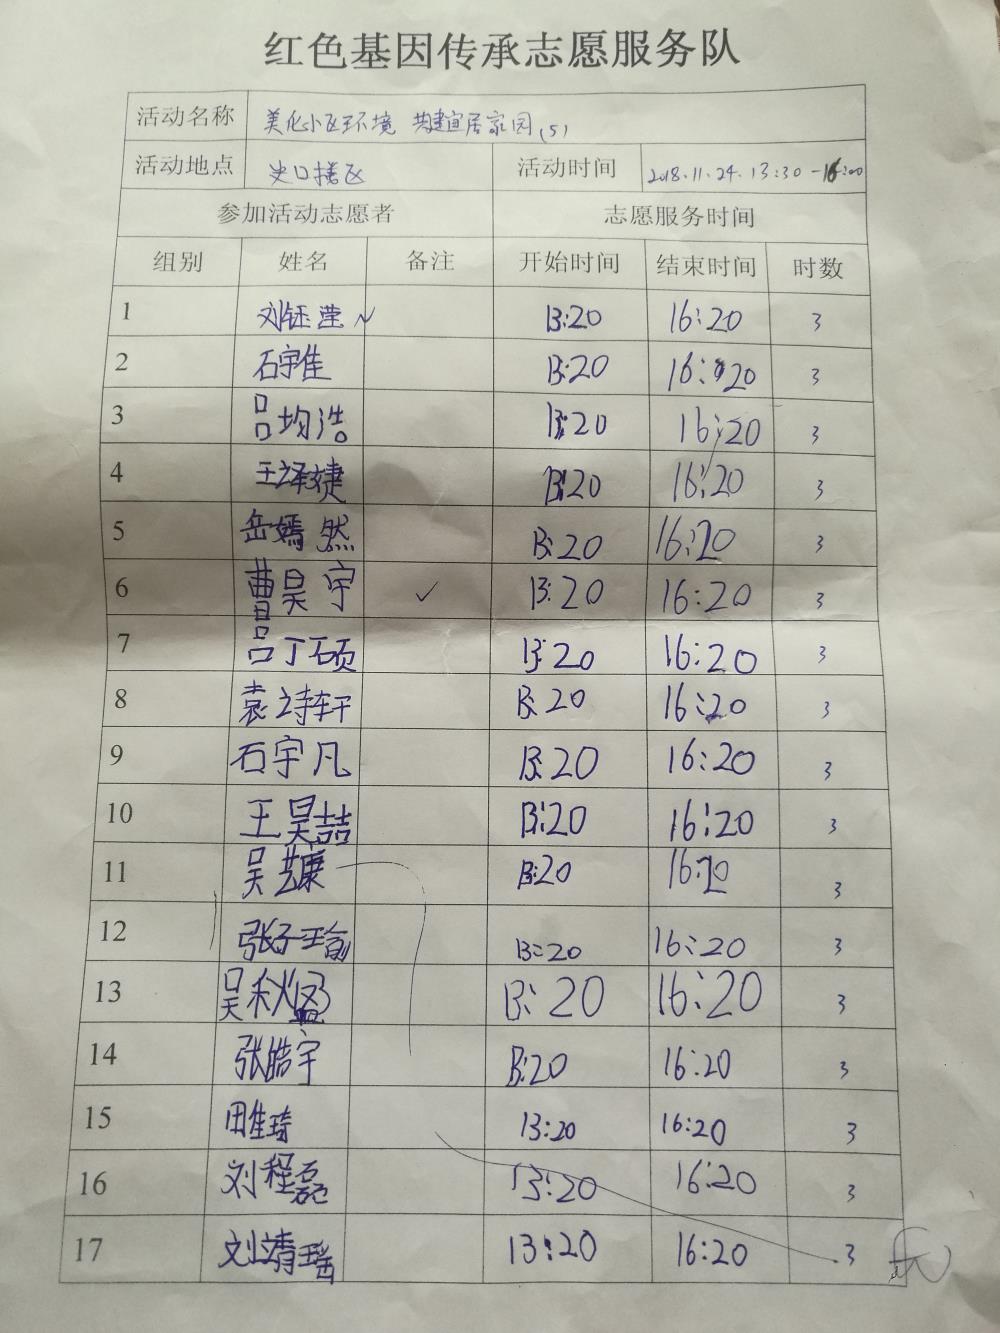 红色基因传承志愿服务队
活动名称 美化小区环境 共建宜居家园(5)
活动地点 史口搂区 活动时间 2018.11.24.13:30-16:00
参加活动志愿者 志愿服务时间
组别 姓名 备注 开始时间 结束时间 时数
1 刘钰莹 13:20 16:20 3
2 石宇佳 13:20 16:20 3
3 吕均浩 13:20 16:20 3
4 王泽婕 13:20 16:20 3
5 岳嫣然 13:20 16:20 3
6 曹昊宇 ✓ 13:20 16:20 3
7 吕丁硕 13:20 16:20 3
8 袁诗轩 13:20 16:20 3
9 石宇凡 13:20 16:20 3
10 王昊喆 13:20 16:20 3
11 吴艺康 13:20 16:20 3
12 张子瑜 13:20 16:20 3
13 吴秋 13:20 16:20 3
14 张皓宇 13:20 16:20 3
15 田佳琦 13:20 16:20 3
16 刘程磊 13:20 16:20 3
17 刘靖瑶 13:20 16:20 3